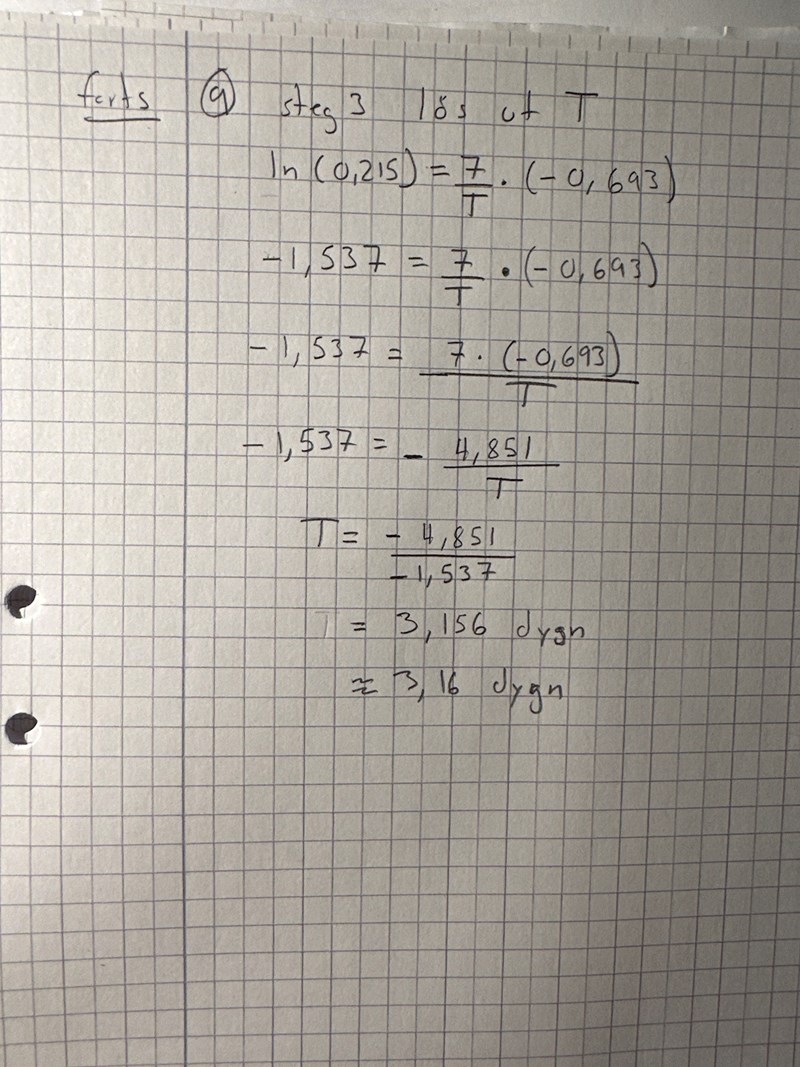 forts 9 steg 3 lös ut T
ln (0,215) = 7/T · (-0,693)
-1,537 = 7/T · (-0,693)
-1,537 = 7 · (-0,693)/T
-1,537 = - 4,851/T
T = - 4,851/-1,537
T = 3,156 dygn
≈ 3,16 dygn